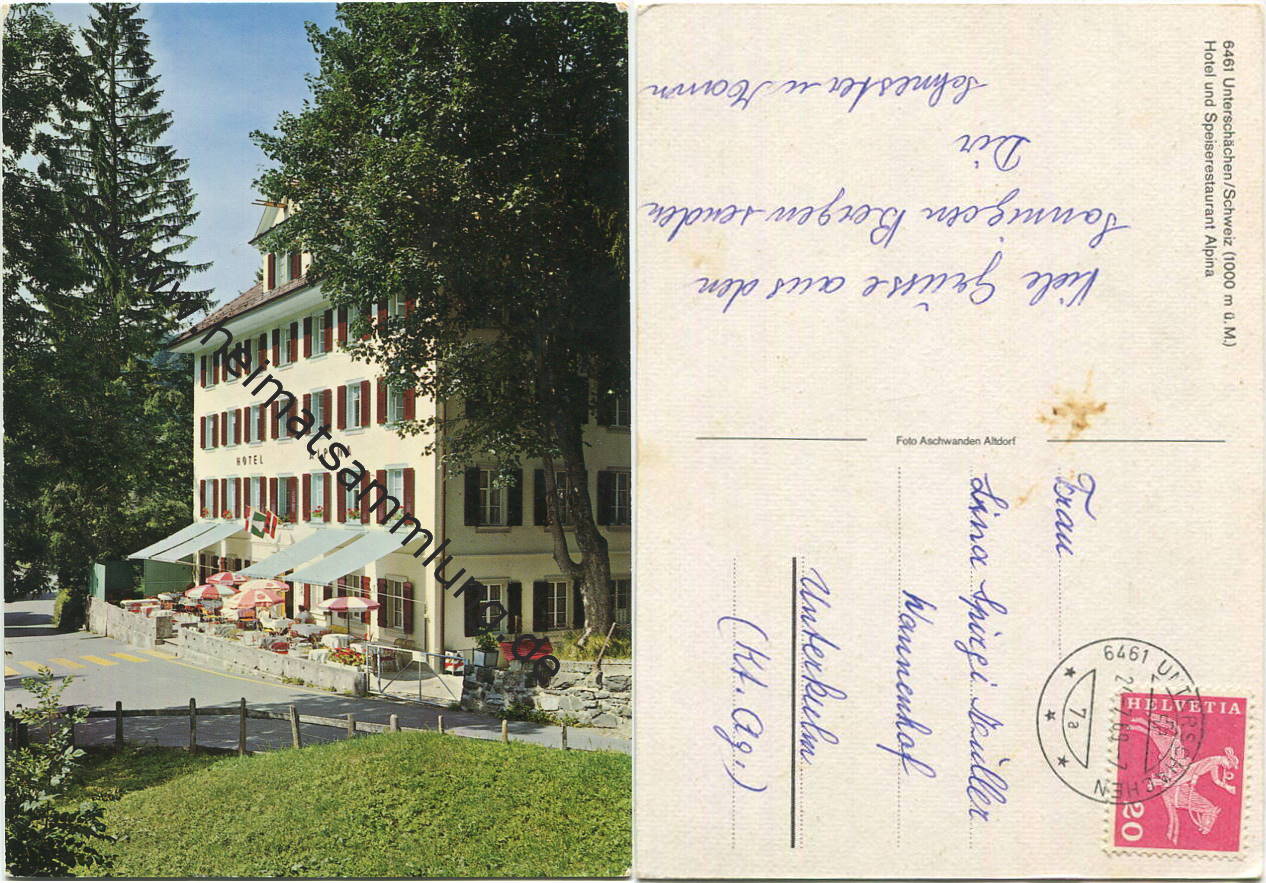 HOTEL
www.heimatsammlung.de
6461 Unterschächen/Schweiz (1000 m ü. M.)
Hotel und Speiserestaurant Alpina
Viele Grüsse aus den
sonnigen Bergen senden
Dir
Schwester u Mann
Foto Aschwanden Altdorf
Frau
Lina Spirgi Müller
Wannenhof
Unterkulm
(Kt. Ag.)
6461 UNTERSCHÄCHEN
7a
HELVETIA
20